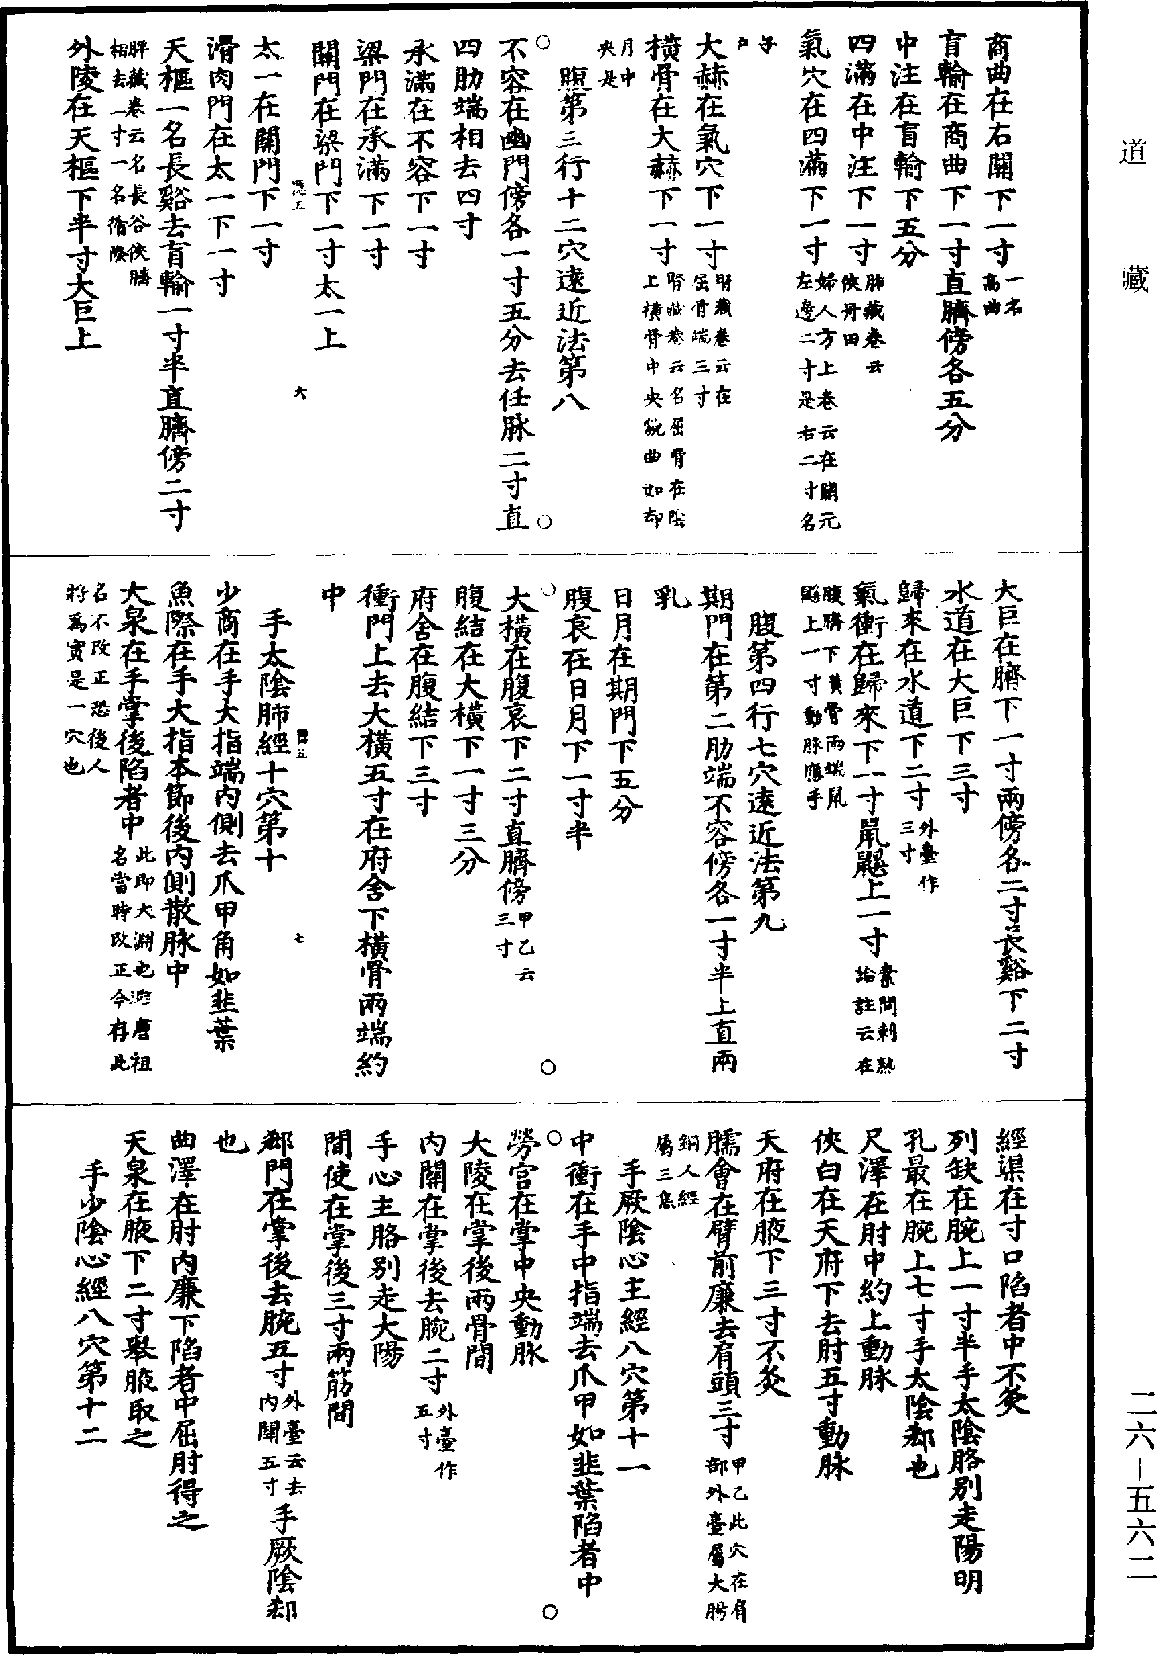 道藏
商曲在右關下一寸一名高曲
肓輸在商曲下一寸直臍傍各五分
中注在肓輸下五分
四滿在中注下一寸肺藏卷云俠丹田
氣穴在四滿下一寸婦人方上卷云在關元左邊二寸是右二寸名
子戶
大赫在氣穴下一寸腎藏卷云在屈骨端三寸
橫骨在大赫下一寸腎藏卷云名屈骨在陰上橫骨中央宛曲如却
月中央是
腹第三行十二穴遠近法第八
不容在幽門傍各一寸五分去任脉二寸直
四肋端相去四寸
承滿在不容下一寸
梁門在承滿下一寸
關門在梁門下一寸太一上
六
太一在關門下一寸
滑肉門在太一下一寸
天樞一名長谿去肓輸一寸半直臍傍二寸
脾藏卷云名長谷俠臍相去一寸一名循際
外陵在天樞下半寸大巨上
大巨在臍下一寸兩傍各二寸長谿下二寸
水道在大巨下三寸
歸來在水道下二寸外臺作三寸
氣衝在歸來下一寸鼠鼷上一寸素問刺熱論註云在
腹臍下橫骨兩端鼠鼷上一寸動脉應手
腹第四行七穴遠近法第九
期門在第二肋端不容傍各一寸半上直兩
乳
日月在期門下五分
腹哀在日月下一寸半
大橫在腹哀下二寸直臍傍甲乙云三寸
腹結在大橫下一寸三分
府舍在腹結下三寸
衝門上去大橫五寸在府舍下橫骨兩端約
中
七
手太陰肺經十穴第十
少商在手大指端內側去爪甲角如韭葉
魚際在手大指本節後內側散脉中
大泉在手掌後陷者中此即大淵也避唐祖名當時改正今存此
名不改正恐後人將為寶是一穴也
經渠在寸口陷者中不灸
列缺在腕上一寸半手太陰胳別走陽明
孔最在腕上七寸手太陰郄也
尺澤在肘中約上動脉
俠白在天府下去肘五寸動脉
天府在腋下三寸不灸
臑會在臂前廉去肩頭三寸甲乙此穴在肩部外臺屬大腸
銅人經屬三焦
手厥陰心主經八穴第十一
中衝在手中指端去爪甲如韭葉陷者中
勞宮在掌中央動脉
大陵在掌後兩骨間
內關在掌後去腕二寸外臺作五寸
手心主胳別走大陽
間使在掌後三寸兩筋間
郄門在掌後去腕五寸外臺云去內關五寸手厥陰郄
也
曲澤在肘內廉下陷者中屈肘得之
天泉在腋下二寸舉腋取之
手少陰心經八穴第十二
二六－五六二